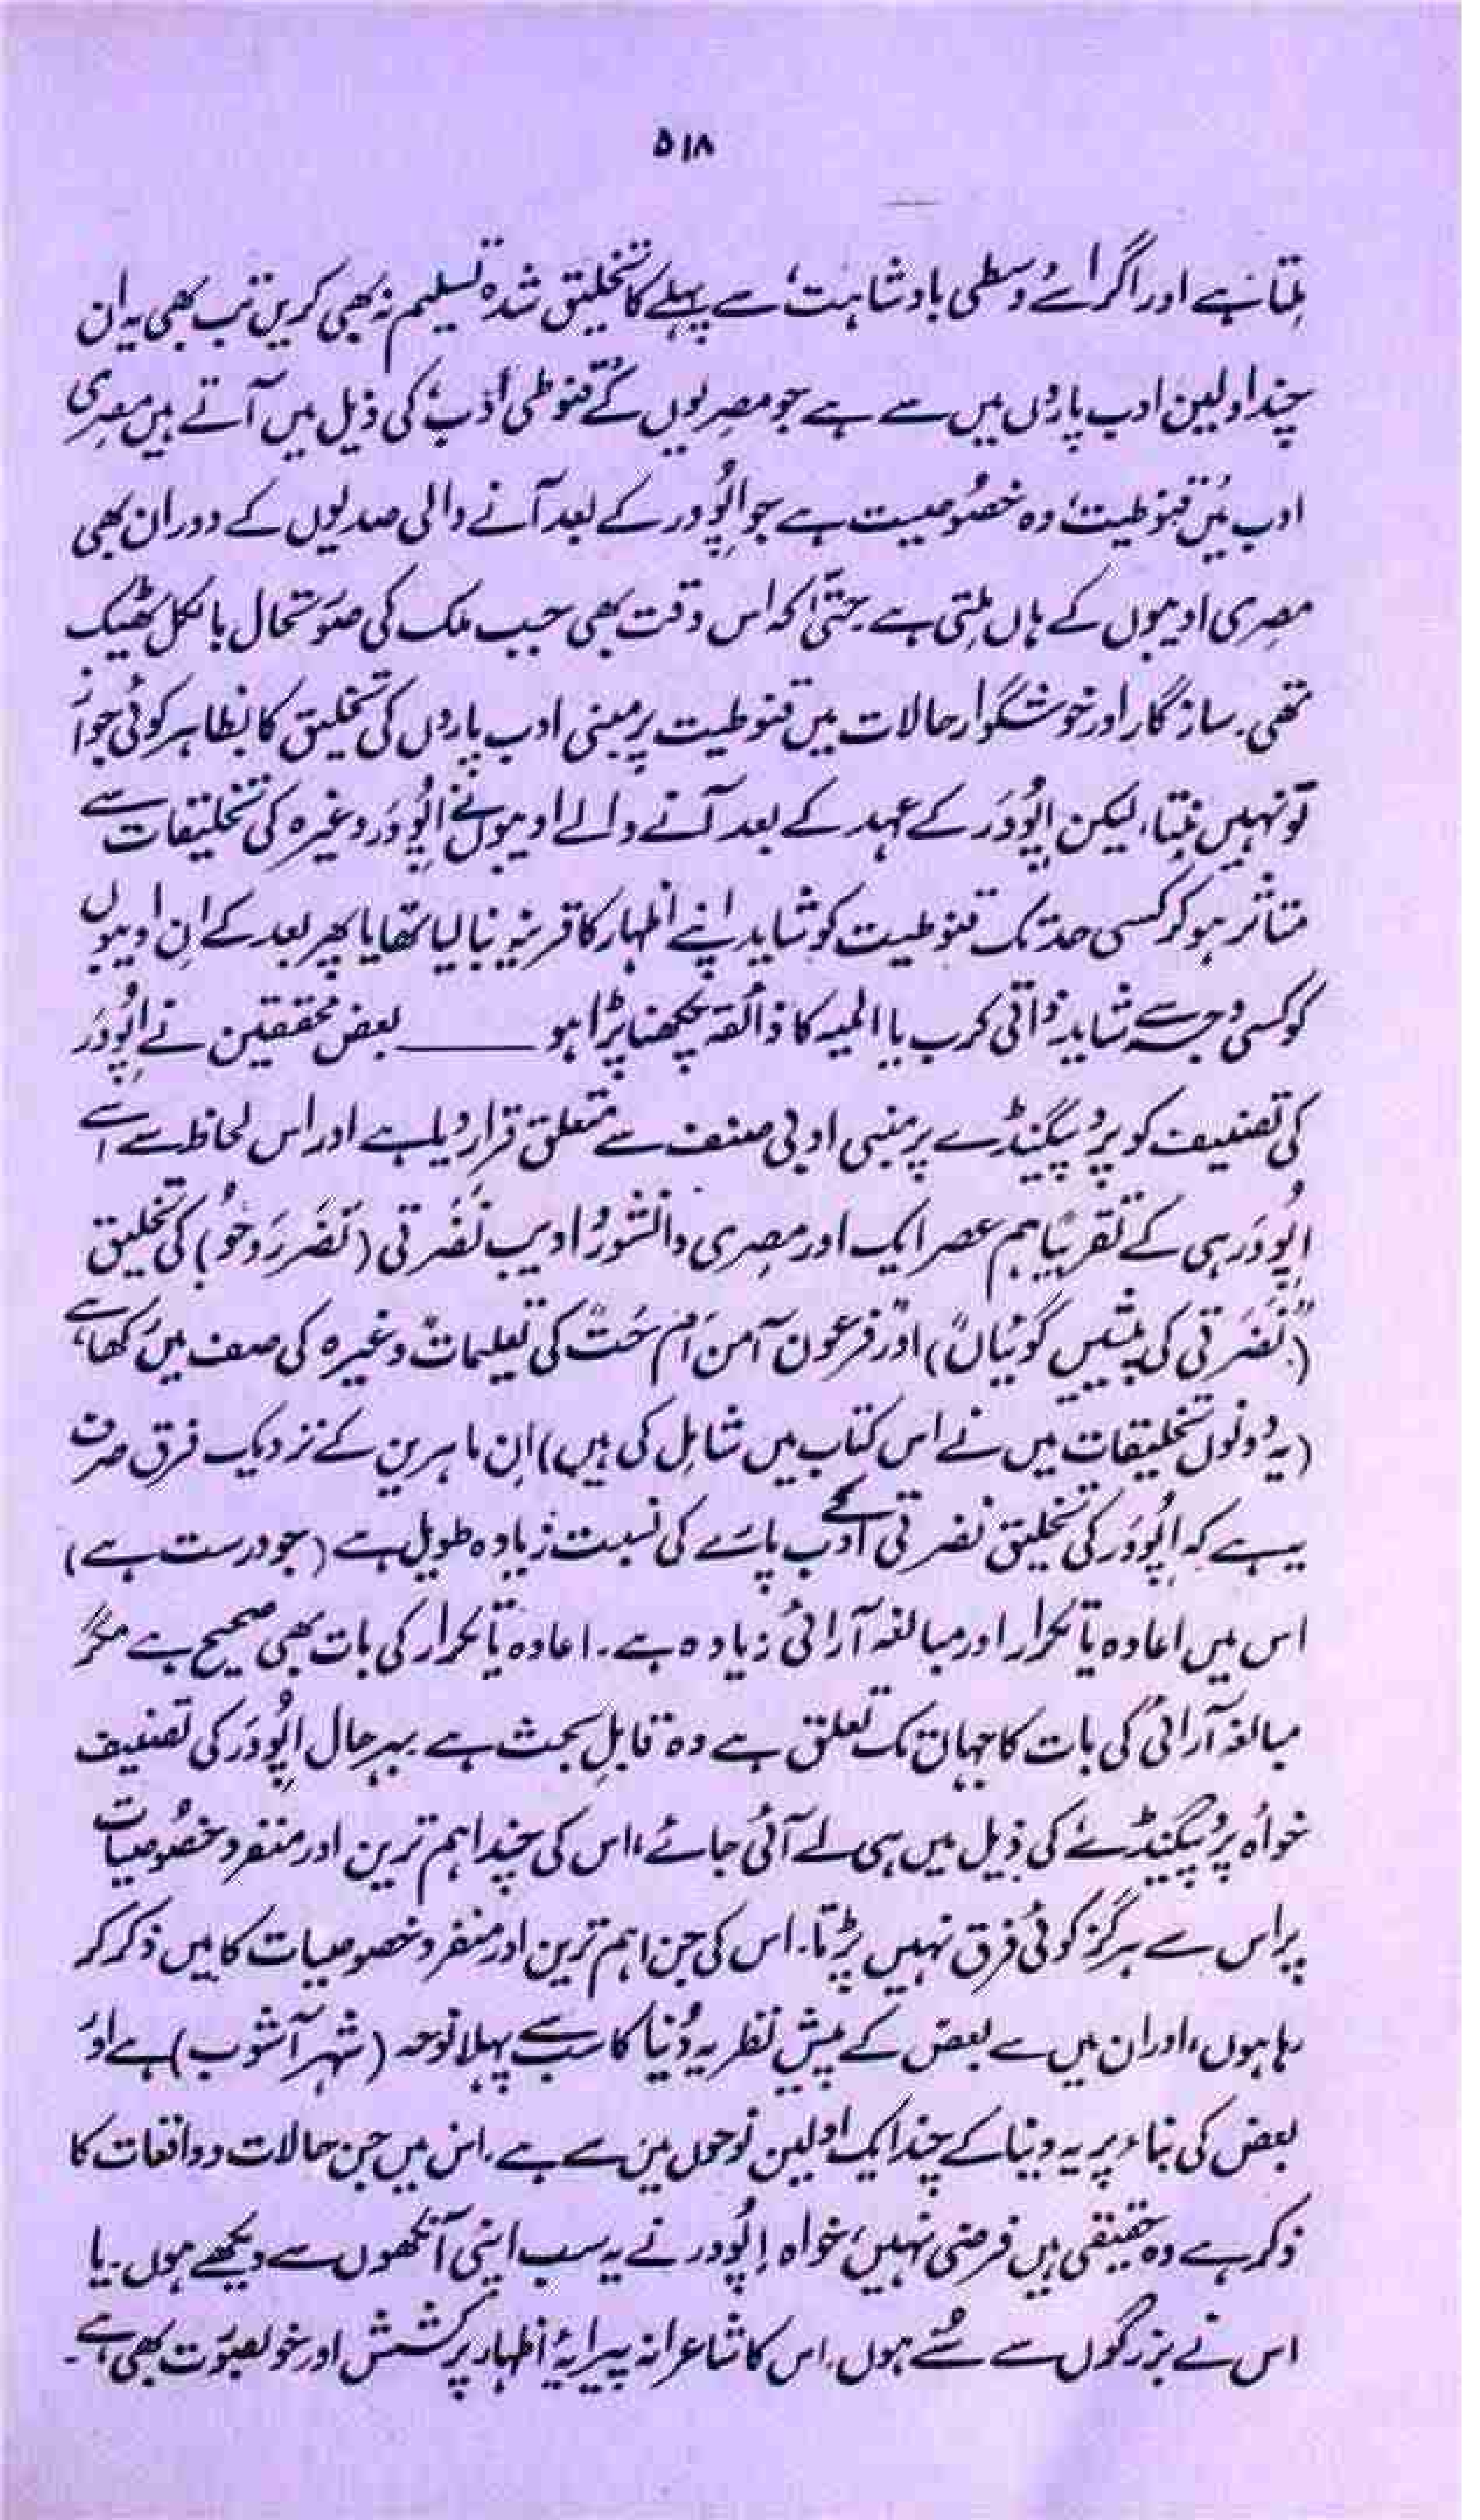 ۵۱۸
ملتا ہے اور اگر اسے وسطی بادشاہت، سے پہلے کا تخلیق شدہ تسلیم نہ بھی کریں تب بھی یہ ان
چند اولین ادب پاروں میں سے ہے جو مصریوں کے قنوطی ادب، کی ذیل میں آتے ہیں مصری
ادب میں قنوطیت، وہ خصوصیت ہے جو اِپُوور کے بعد آنے والی صدیوں کے دوران بھی
مصری ادیبوں کے ہاں ملتی ہے حتّیٰ کہ اس وقت بھی جب ملک کی صورتحال بالکل ٹھیک
تھی۔ سازگار اور خوشگوار حالات میں قنوطیت پر مبنی ادب پاروں کی تخلیق کا بظاہر کوئی جواز
تو نہیں بنتا، لیکن اِپُووَر کے عہد کے بعد آنے والے ادیبوں نے اِپُووَر وغیرہ کی تخلیقات سے
متاثر ہو کر کسی حد تک قنوطیت کو شاید اپنے اظہار کا قرینہ بنا لیا تھا یا پھر بعد کے اِن ادیبوں
کو کسی وجہ سے شاید ذاتی کرب یا المیہ کا ذائقہ چکھنا پڑا ہو ــــــــ بعض محققین نے اِپُووَر
کی تصنیف کو پروپیگنڈے پر مبنی ادبی صنف سے متعلق قرار دیا ہے اور اس لحاظ سے اسے
اِپُووَر ہی کے تقریباً ہم عصر ایک اور مصری دانشور ادیب نَفَرتی (نَفَررَوحُو) کی تخلیق
("نَفَرتی کی پیشیں گوئیاں") اور "فرعون آمن اَم حَت کی تعلیمات" وغیرہ کی صف میں رکھا ہے
(یہ دونوں تخلیقات میں نے اس کتاب میں شامل کی ہیں) ان ماہرین کے نزدیک فرق صرف
یہ ہے کہ اِپُووَر کی تخلیق نفرتی کے ادب پارے کی نسبت زیادہ طویل ہے (جو درست ہے)
اس میں اعادہ یا تکرار اور مبالغہ آرائی زیادہ ہے۔ اعادہ یا تکرار کی بات بھی صحیح ہے مگر
مبالغہ آرائی کی بات کا جہاں تک تعلق ہے وہ قابلِ بحث ہے بہرحال اِپُووَر کی تصنیف
خواہ پروپیگنڈے کی ذیل میں ہی لے آئی جائے، اس کی چند اہم ترین اور منفرد خصوصیات
پر اس سے ہرگز کوئی فرق نہیں پڑتا۔ اس کی جن اہم ترین اور منفرد خصوصیات کا میں ذکر کر
رہا ہوں، اور ان میں سے بعض کے پیشِ نظر یہ دُنیا کا سب سے پہلا نوحہ (شہر آشوب) ہے اور
بعض کی بناء پر یہ دنیا کے چند ایک اولین نوحوں میں سے ہے، اس میں جن حالات و واقعات کا
ذکر ہے وہ حقیقی ہیں فرضی نہیں، خواہ اِپُوور نے یہ سب اپنی آنکھوں سے دیکھے ہوں۔ یا
اس نے بزرگوں سے سُنے ہوں۔ اس کا شاعرانہ پیرایۂ اظہار پُرکشش اور خوبصورت بھی ہے۔